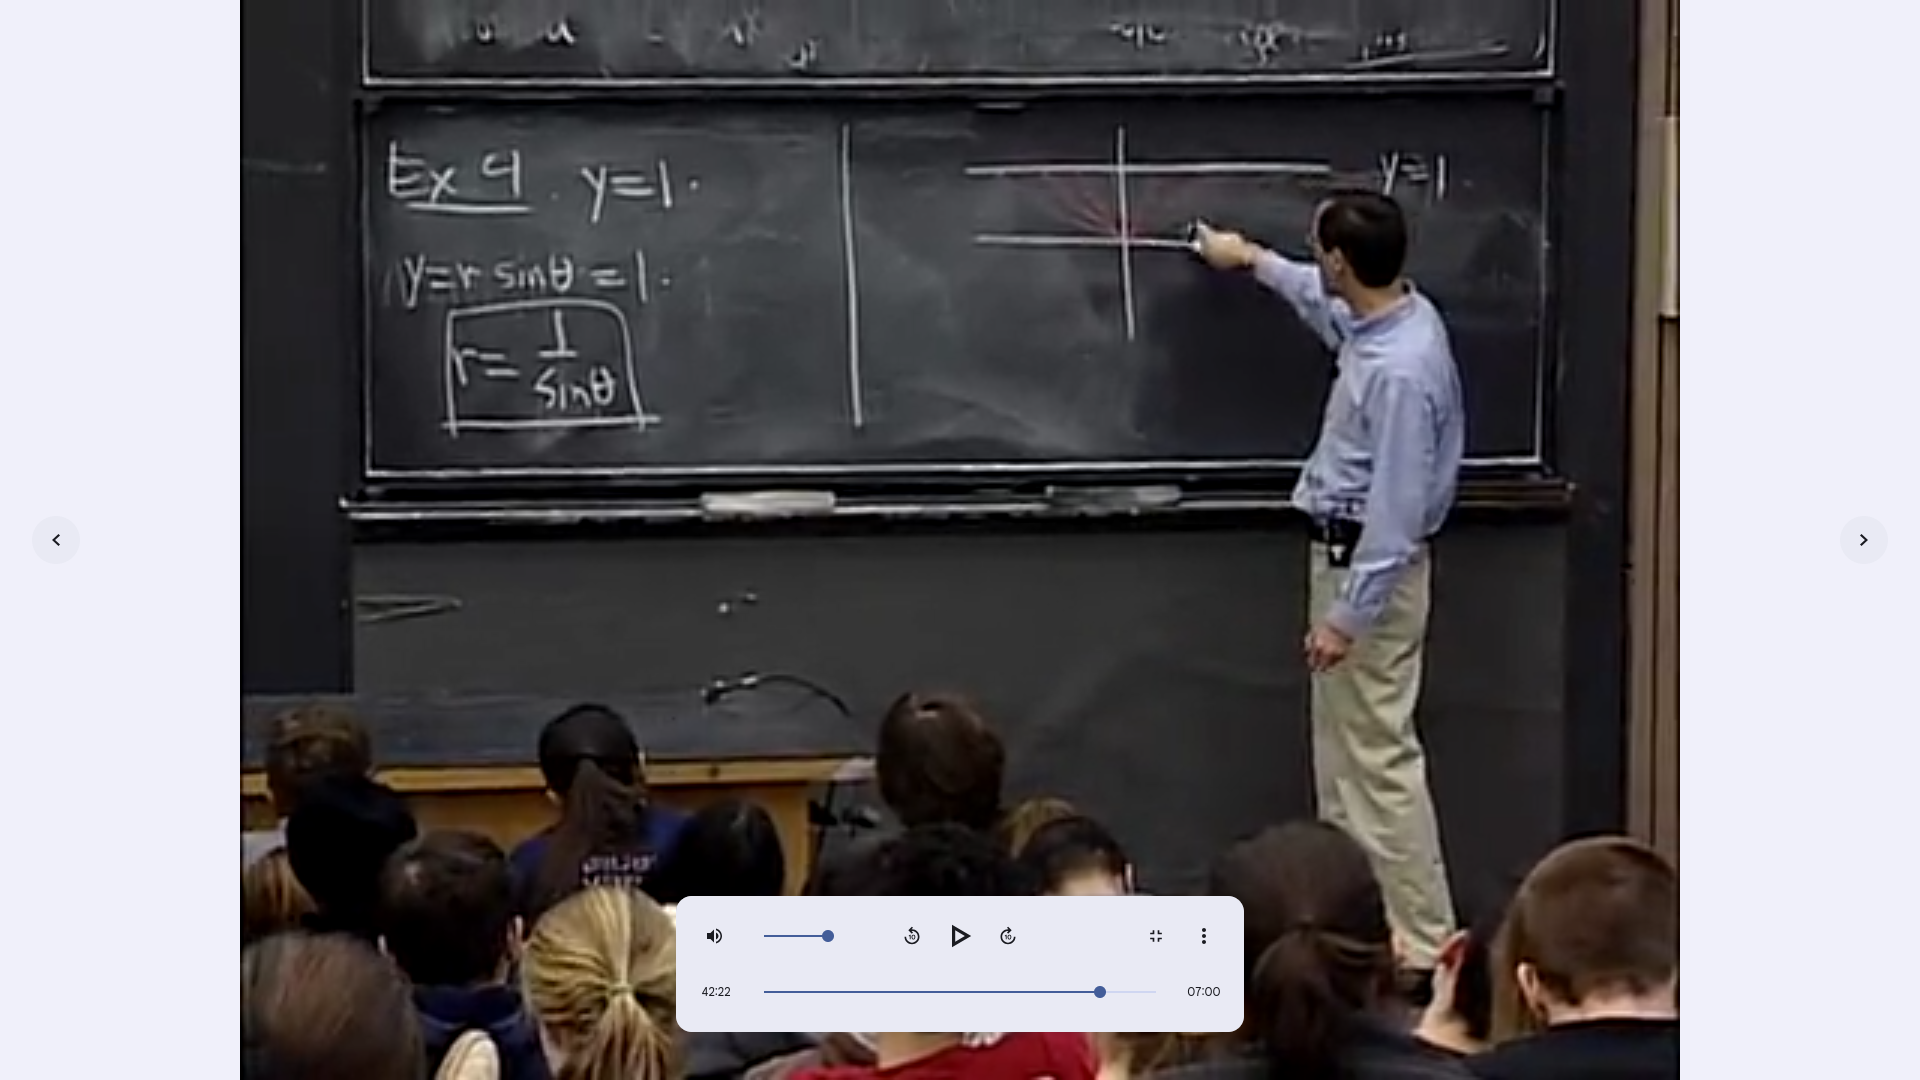 Ex 4. y=1.
y=r sinθ=1.
r= 1
sinθ
y=1
10
10
42:22
07:00